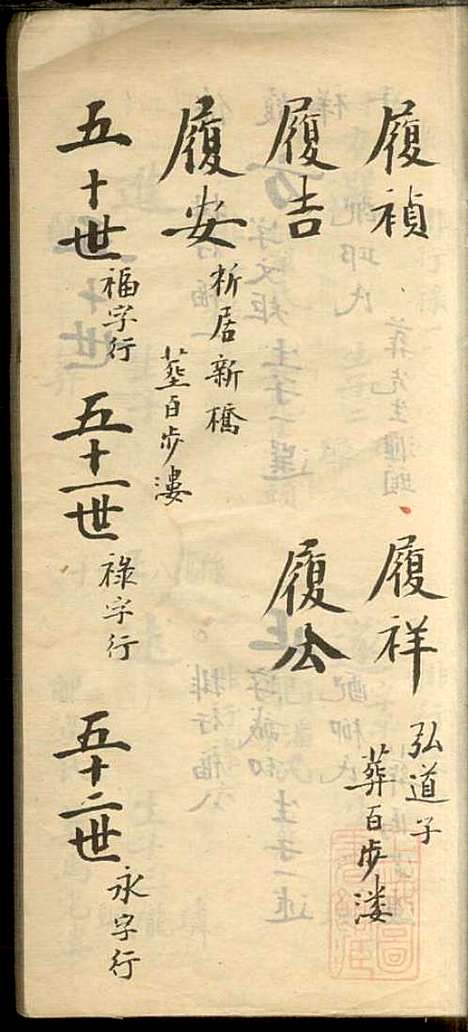 履禎
履祥 弘道子
葬百步溇
履吉
履公
履安 析居新橋
塟百步溇
五十世 福字行 五十一世 祿字行 五十二世 永字行